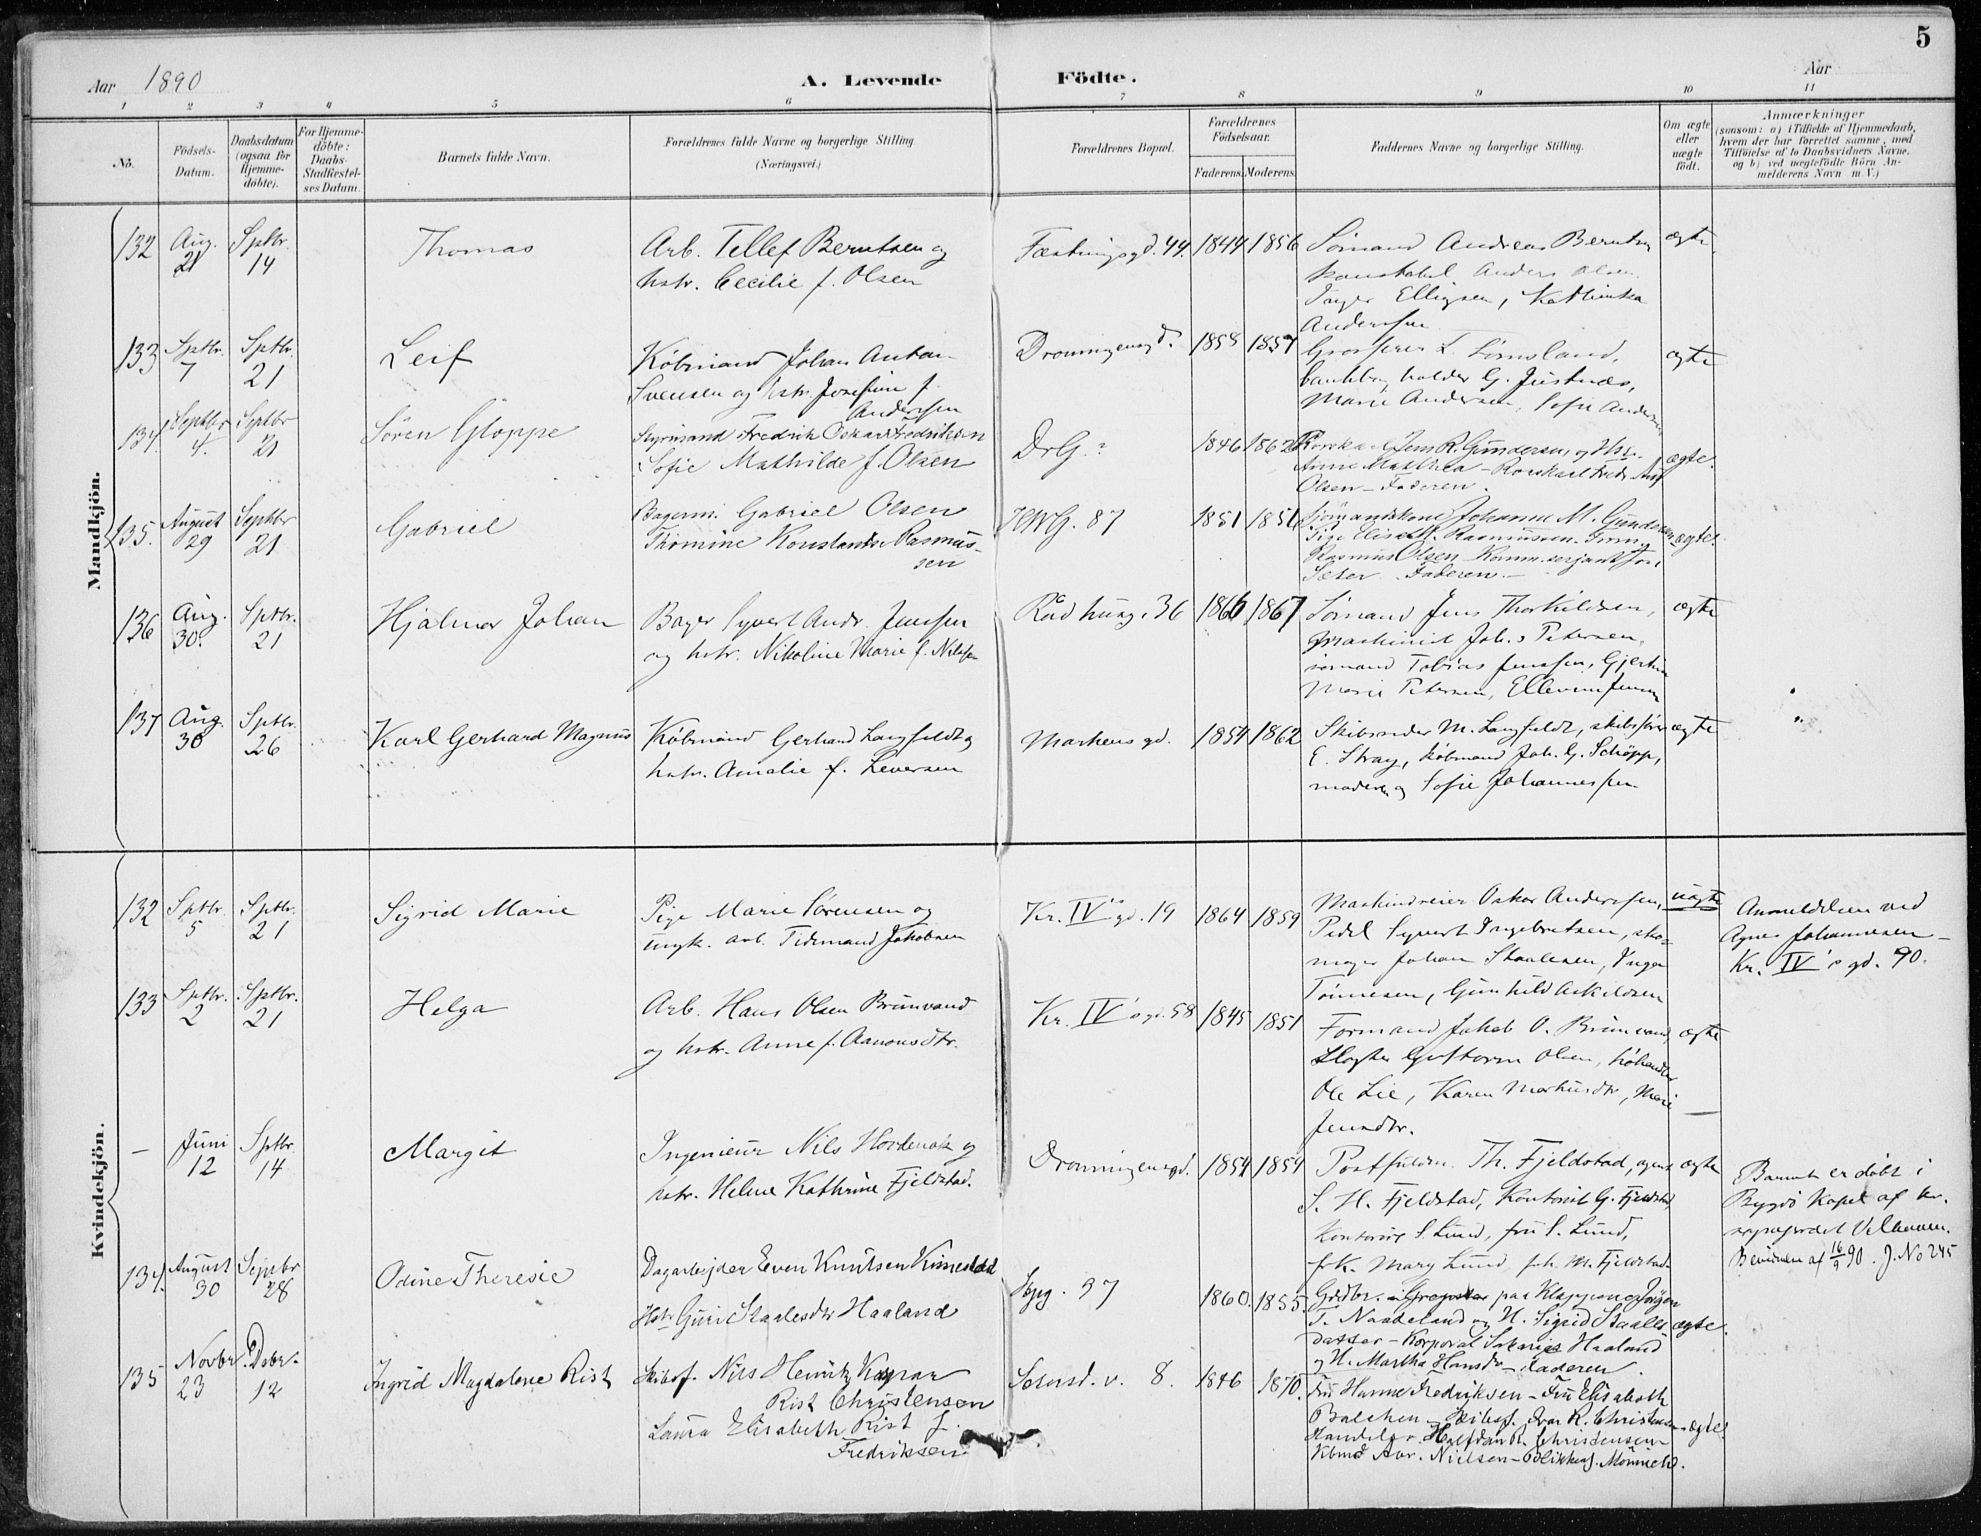 5
Aar 1890 A. Levende Födte. Aar
1 2 3 4 5 6 7 8 9 10 11
No. Födsels-Datum. Daabsdatum (ogsaa for Hjemme-döbte). For Hjemme-döbte: Daabs-Stadfæstel-ses Datum. Barnets fulde Navn. Forældrenes fulde Navne og borgerlige Stilling. (Næringsvei.) Forældrenes Bopæl. Forældrenes Födselsaar. Faderens. Moderens. Faddernes Navne og borgerlige Stilling. Om ægte eller uægte födt. Anmærkninger (saasom: a) i Tilfælde af Hjemmedaab, hvem der har forrettet samme, med Tilföielse af to Daabsvidners Navne. og b) ved uægtefödte Börn An-melderens Navn m. V.)
Mandkjön.
132 Aug. 21 Septbr. 14 Thomas Arb. Tellef Berntsen og
hstr. Cecilie f. Olsen
Fæstningsgd. 44. 1844 1856 Sömand Andreas Berntsen
Konstabel Anders Olsen.
Inger Elligsen, Kathinka
Anderssen
ægte.
133 Septbr. 7 Sptbr. 21 Leif Köbmand Johan Anton
Svensen og hstr. Josefine f.
Anderssen
Dronningensgd. 1858 1857 Grosserer L. Lömsland,
bankbogholder G. Justnæs,
Marie Andersen, Sofie Andersen
ægte
134. Septbr 4. Septbr 21 Sören Gloppe Styrmand Fredrik Oskar Fredriksen
Sofie Mathilde f. Olsen
Dr G. ? 1846 1862 Jens R. Gundersen, og Hst.
Anne Mathea
Olsen – Faderen.
ægte.
135. August 29 Septbr 21 Gabriel Bagerm. Gabriel Olsen
Thomine Konstanse Rasmus-
sen
KWG. 87 1851 1851 Sjömandskone Johanne M. Gundersen
Pige Elisab. Rasmussen
Rasmus Olsen
Sæter Faderen –
ægte.
136 Aug. 30. Sptbr. 21 Hjalmar Johan Bager Syvert Andr. Jenssen
og hstr. Nikoline Marie f. Nilssen
Raadhusg. 36 1866 1867 Sömand Jens Thorkildsen,
Maskinist Johs Petersen,
sömand Tobias Jenssen, Gjertine
Marie Petersen, Ellevine Jensen
ægte
137 Aug. 30 Sptbr. 26 Karl Gerhard Magnus Köbmand Gerhard Langfeldt og
hstr. Amalie f. Siversen
Markensgd. 1854 1862 Skibsreder M. Langfeldt, skibsförer
E. Stray, köbmand Joh. G. Schöpp,
moderen og Sofie Johannessen
ægte
Kvindekjön.
132 Sptbr. 5 Sptbr. 21 Sigrid Marie Pige Marie Sörensen og
ungk. arb. Tidemand Jakobsen
Kr. IV's gd. 19 1864 1859 Maskindreier Oskar Anderssen,
Pedel Syvert Ingebretsen, sko-
mager Johan Staalesen, Inger
Tönnesen, Gunhild Askildsen
uægte
Anmeldelsen ved
Agnes Johannesen –
Kr. IV's gd. 90.
133 Sptbr. 2 Sptbr. 21 Helga Arb. Hans Olsen Brunvand
og hstr. Anne f. Aanonsdtr.
Kr. IV's gd. 58 1845 1851 Formand Jakob O. Brunvand,
Slagter Guttorm Olsen, köhandler
Ole Lie, Karen Markusdtr, Marie
Jensdtr.
ægte
– Juni 12 Sptbr 14 Margit Ingenieur Nils Hovdenak og
hstr. Helene Kathrine Fjeldstad.
Dronningensgd. 1854 1854 Postfuldm. Th. Fjeldstad, agent
S. H. Fjeldstad, Kontorist G. Fjeldstad,
Kontorist S. Lund, fru S. Lund,
frk. Mary Lund, frk. M. Fjeldstad.
ægte
Barnet er döbt i
Bygdö Kapel af kr.
Velhaven.
16/9 90. J. No 245
134. August 30 Septbr 28 Odine Theresie Dagarbejder Even Knutsen Kimestad
Hstr Guri Staalesdtr Haaland
97 1860. 1855. Grdbr.
T. Naadeland og H. Sigrid Staales
datter – Korporal Sakarias Haaland
og H. Martha Hansdtr – Faderen.
ægte.
135 Novbr. 23 Debr. 12 Ingrid Magdalene Rist Skibsf. Nils Henrik Kaspar
Rist Christensen
Laura Elisabeth Rist f.
Fredriksen.
Setersd. v. 8. 1846 1870. Fru Hanne Fredriksen – Fru Elisabeth
Balchen – Skibsf. Ivar R. Christensen
Handelsr. Halfdan R. Christensen
Kbmd Aar. Nielsen –
ægte